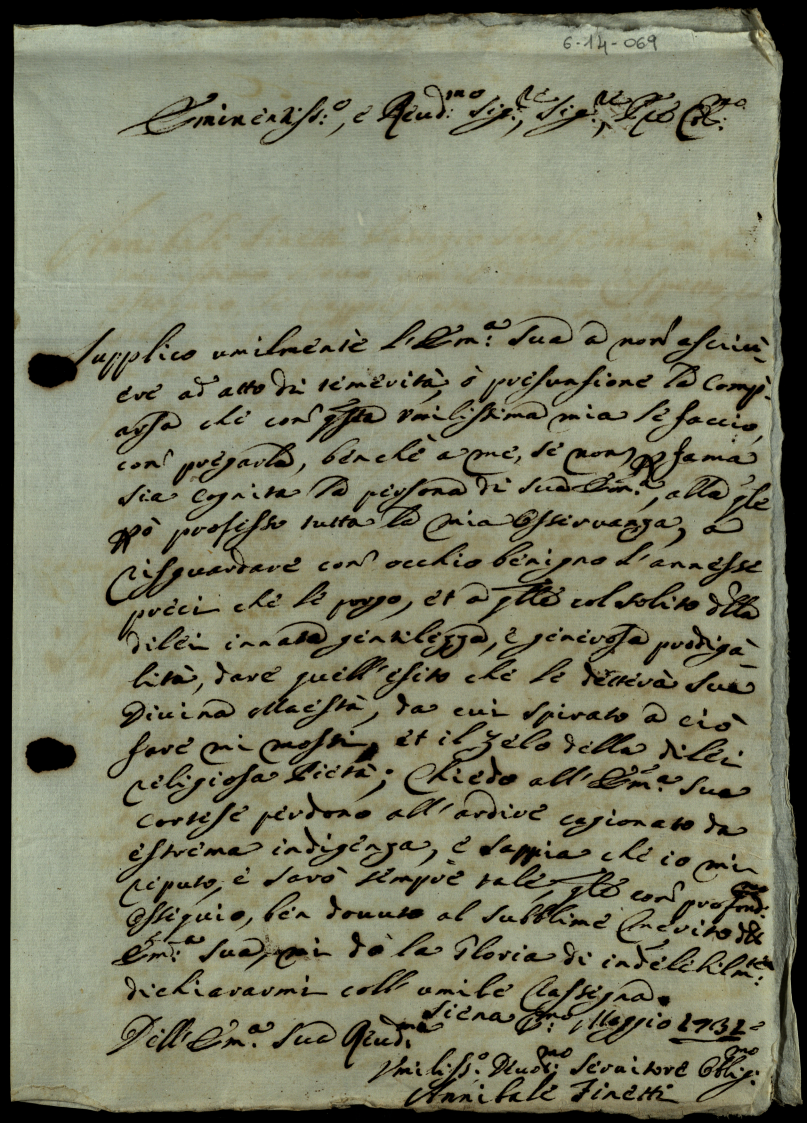 6-14-069
Eminentiss:º, e Reud:mo Sig:re, Sig:re, Pñe Col:mo
Supplico umilmente l'Em:a Sua à non ascrivi-
ere ad atto di temerità, ò presunsione la Comp-
arsa che con qsta umilissima mia le faccio,
con pregarla, benchè a me, se non p fama
sia cognita la persona di Sua Em:a, alla qle
pò professo tutta la mia Osservanza, à
risguardare con occhio benigno l'annesse
preci che le porgo, et à qlle col solito della
dilei innata gentilezza, e generosa prodiga-
lità, dare quell'esito che le detterà Sua
Divina Maestà, da cui spirato a ciò
fare mi mossi, et il Zelo della dilei
religiosa Pietà; Chiedo all'Em:a Sua
cortese perdono all'ardire cagionato da
estrema indigenza, e sappia che io mi
reputo, e sarò sempre tale, qle con profond:mo
Ossequio, ben douuto al subblime Merito dell
Em:a Sua, mi dò la Gloria di indelebilm:te
dichiararmi coll'umile rassegna.
Siena P:mo Maggio 1731=
Dell'Em:a Sua Reud:ma
Umiliss:o Deuot:mo Seruitore Oblig:mo
Annibale Finetti